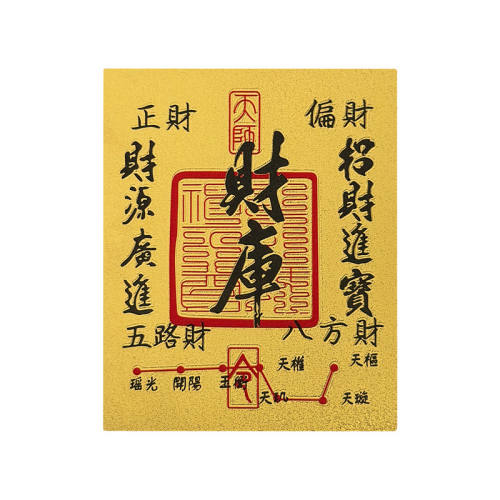 天師
偏財
正財
招財進寶
財庫
財源廣進
八方財
五路財
令
天樞
天璇
天璣
天權
玉衡
開陽
瑶光